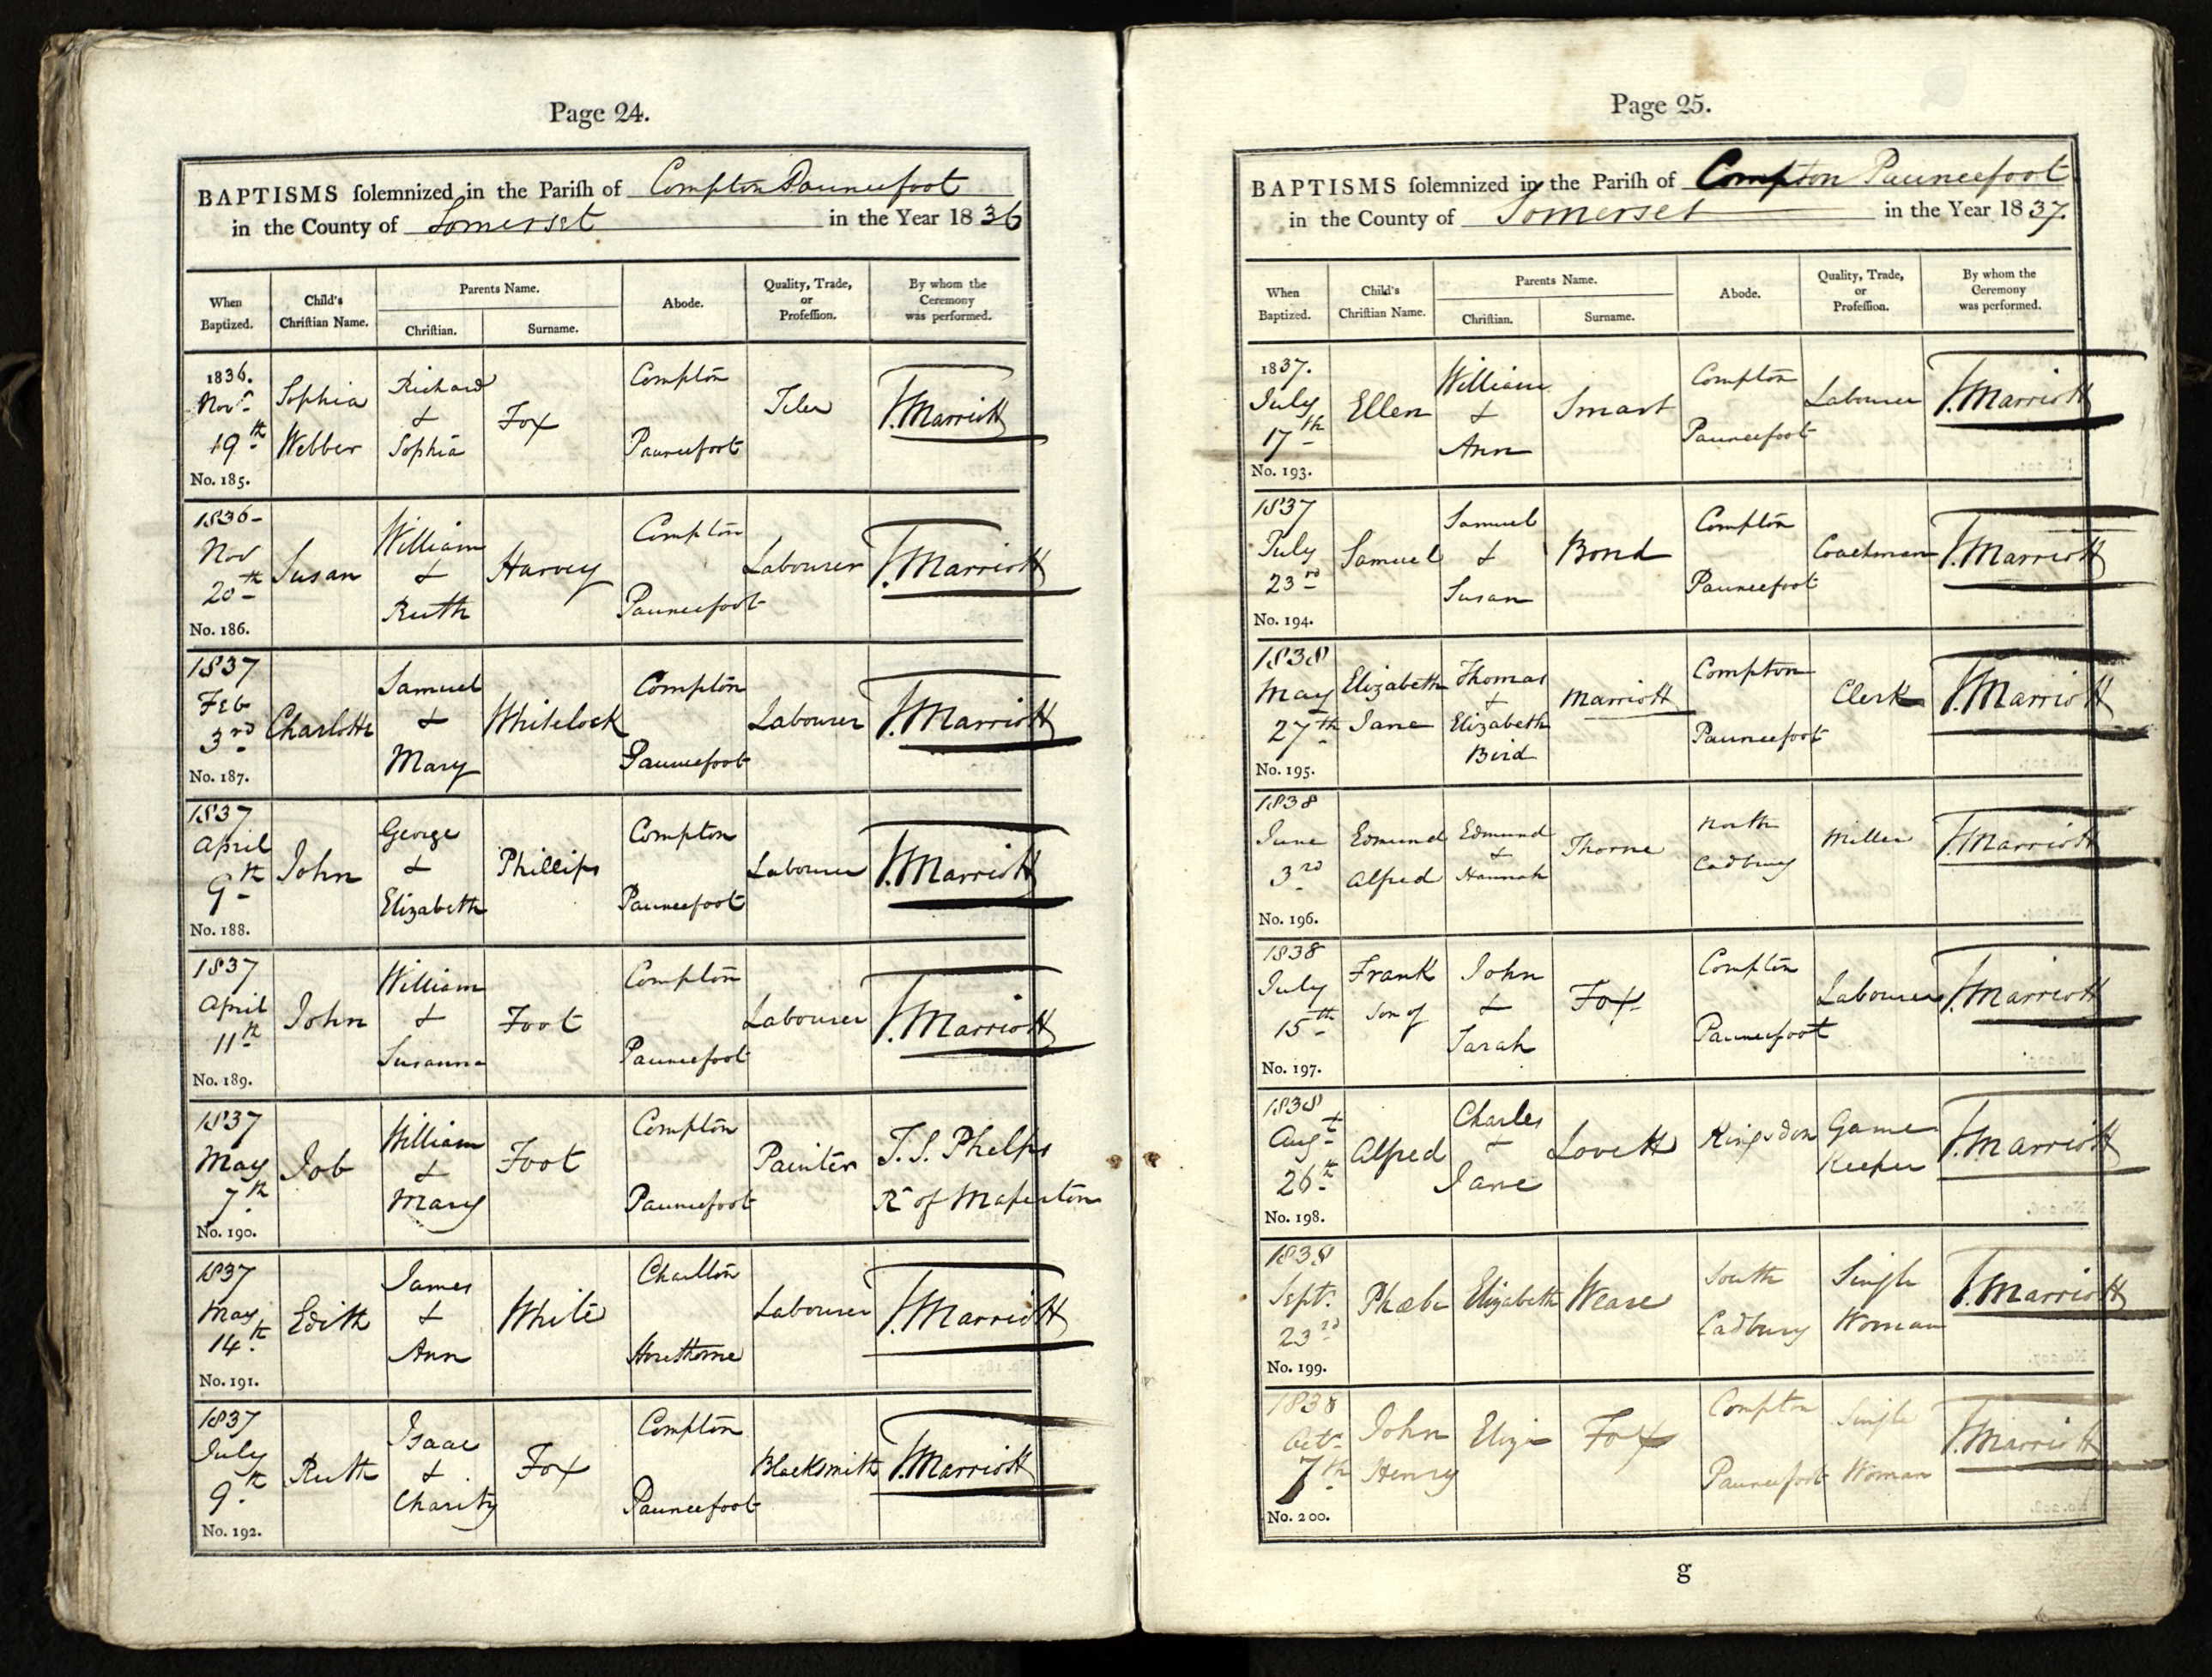 Page 24.
BAPTISMS solemnized in the Parish of Compton Pauncefoot
in the County of Somerset in the Year 1836
When Baptized.
Child's Christian Name.
Parents Name.
Christian.
Surname.
Abode.
Quality, Trade, or Profession.
By whom the Ceremony was performed.
1836. Novr 19th
No. 185.
Sophia Webber
Richard & Sophia
Fox
Compton Pauncefoot
Tiler
J. Marriott
1836- Nov 20th
No. 186.
Susan
William & Ruth
Harvey
Compton Pauncefoot
Labourer
J. Marriott
1837 Feb 3rd
No. 187.
Charlotte
Samuel & Mary
Whitelock
Compton Pauncefoot
Labourer
J. Marriott
1837 April 9th
No. 188.
John
George & Elizabeth
Phillips
Compton Pauncefoot
Labourer
J. Marriott
1837 April 11th
No. 189.
John
William & Susanna
Foot
Compton Pauncefoot
Labourer
J. Marriott
1837 May 7th
No. 190.
Job
William & Mary
Foot
Compton Pauncefoot
Painter
T. S. Phelps
Rr of Maperton
1837 May 14th
No. 191.
Edith
James & Ann
White
Charlton Horethorne
Labourer
J. Marriott
1837 July 9th
No. 192.
Ruth
Isaac & Charity
Fox
Compton Pauncefoot
Blacksmith
J. Marriott
Page 25.
BAPTISMS solemnized in the Parish of Compton Pauncefoot
in the County of Somerset in the Year 1837.
When Baptized.
Child's Christian Name.
Parents Name.
Christian.
Surname.
Abode.
Quality, Trade, or Profession.
By whom the Ceremony was performed.
1837. July 17th
No. 193.
Ellen
William & Ann
Smart
Compton Pauncefoot
Labourer
J. Marriott
1837 July 23rd
No. 194.
Samuel
Samuel & Susan
Bond
Compton Pauncefoot
Coachman
J. Marriott
1838 May 27th
No. 195.
Elizabeth Jane
Thomas & Elizabeth Bird
Marriott
Compton Pauncefoot
Clerk
J. Marriott
1838 June 3rd
No. 196.
Edmund Alfred
Edmund & Hannah
Thorne
North Cadbury
Miller
J. Marriott
1838 July 15th
No. 197.
Frank Son of
John & Sarah
Fox
Compton Pauncefoot
Labourer
J. Marriott
1838 Augt 26th
No. 198.
Alfred
Charles & Jane
Lovett
Kingsdon
Game Keeper
J. Marriott
1838 Sept. 23rd
No. 199.
Phœbe
Elizabeth
Weare
South Cadbury
Single Woman
J. Marriott
1838 Octr 7th
No. 200.
John Henry
Eliza
Fox
Compton Pauncefoot
Single Woman
J. Marriott
g